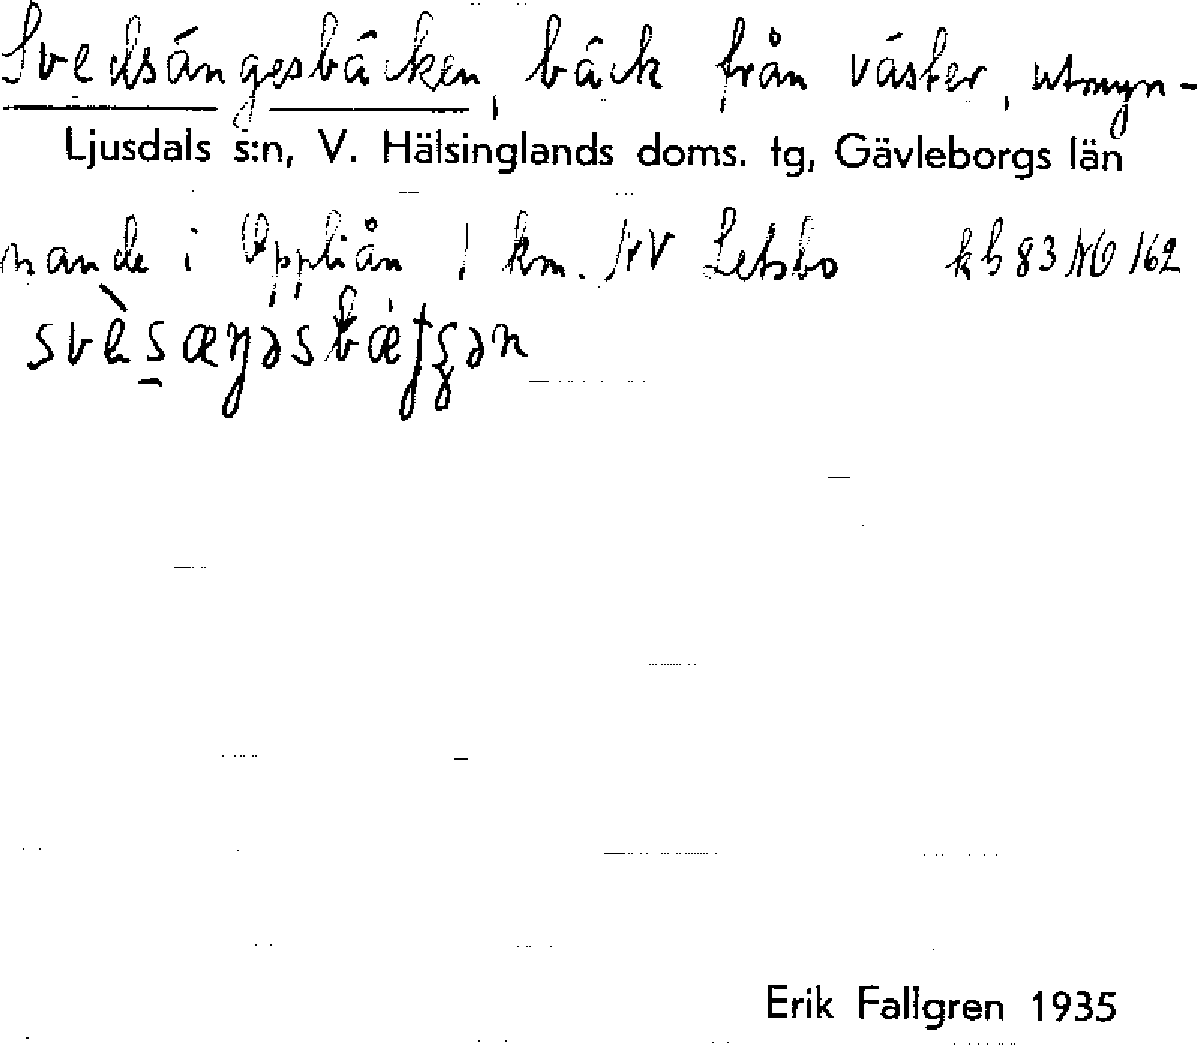 Svedsängesbäcken, bäck från väster, utmyn-
Ljusdals s:n, V. Hälsinglands doms. tg, Gävleborgs län
nande i Oppliån 1 km. NV Letsbo kb 83 NO 162
svèsæŋəsbæ
Erik Fallgren 1935